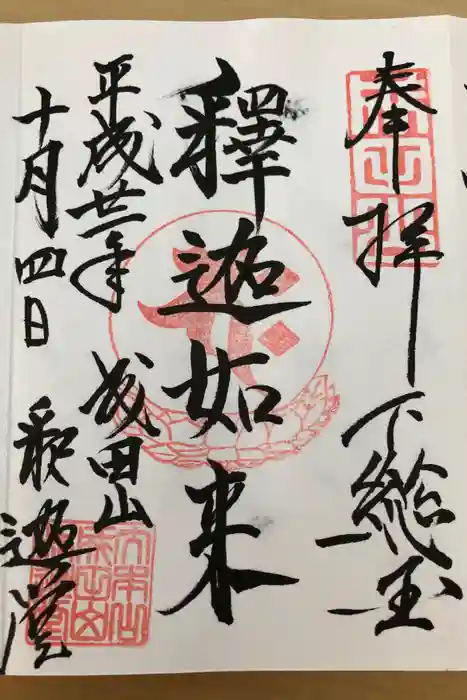 奉拝 下総国
釋迦如来
平成廿一年 成田山
十月四日 釈迦堂